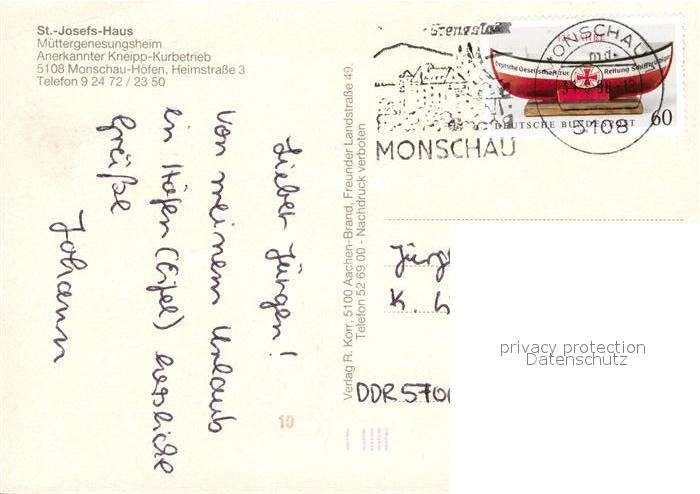 St.-Josefs-Haus
Müttergenesungsheim
Anerkannter Kneipp-Kurbetrieb
5108 Monschau-Höfen, Heimstraße 3
Telefon 9 24 72 / 23 50
Lieber Jürgen!
Von meinem Urlaub
in Höfen (Eifel) herzliche
Grüße
Johann
Verlag R. Korr, 5100 Aachen-Brand, Freunder Landstraße 49.
Telefon 52 69 00 - Nachdruck verboten
MONSCHAU
MONSCHAU
5108
Deutsche Gesellschaft zur Rettung Schiffbrüchiger
DEUTSCHE BUNDESPOST
60
Jürg
K. Li
DDR 570
10
privacy protection
Datenschutz